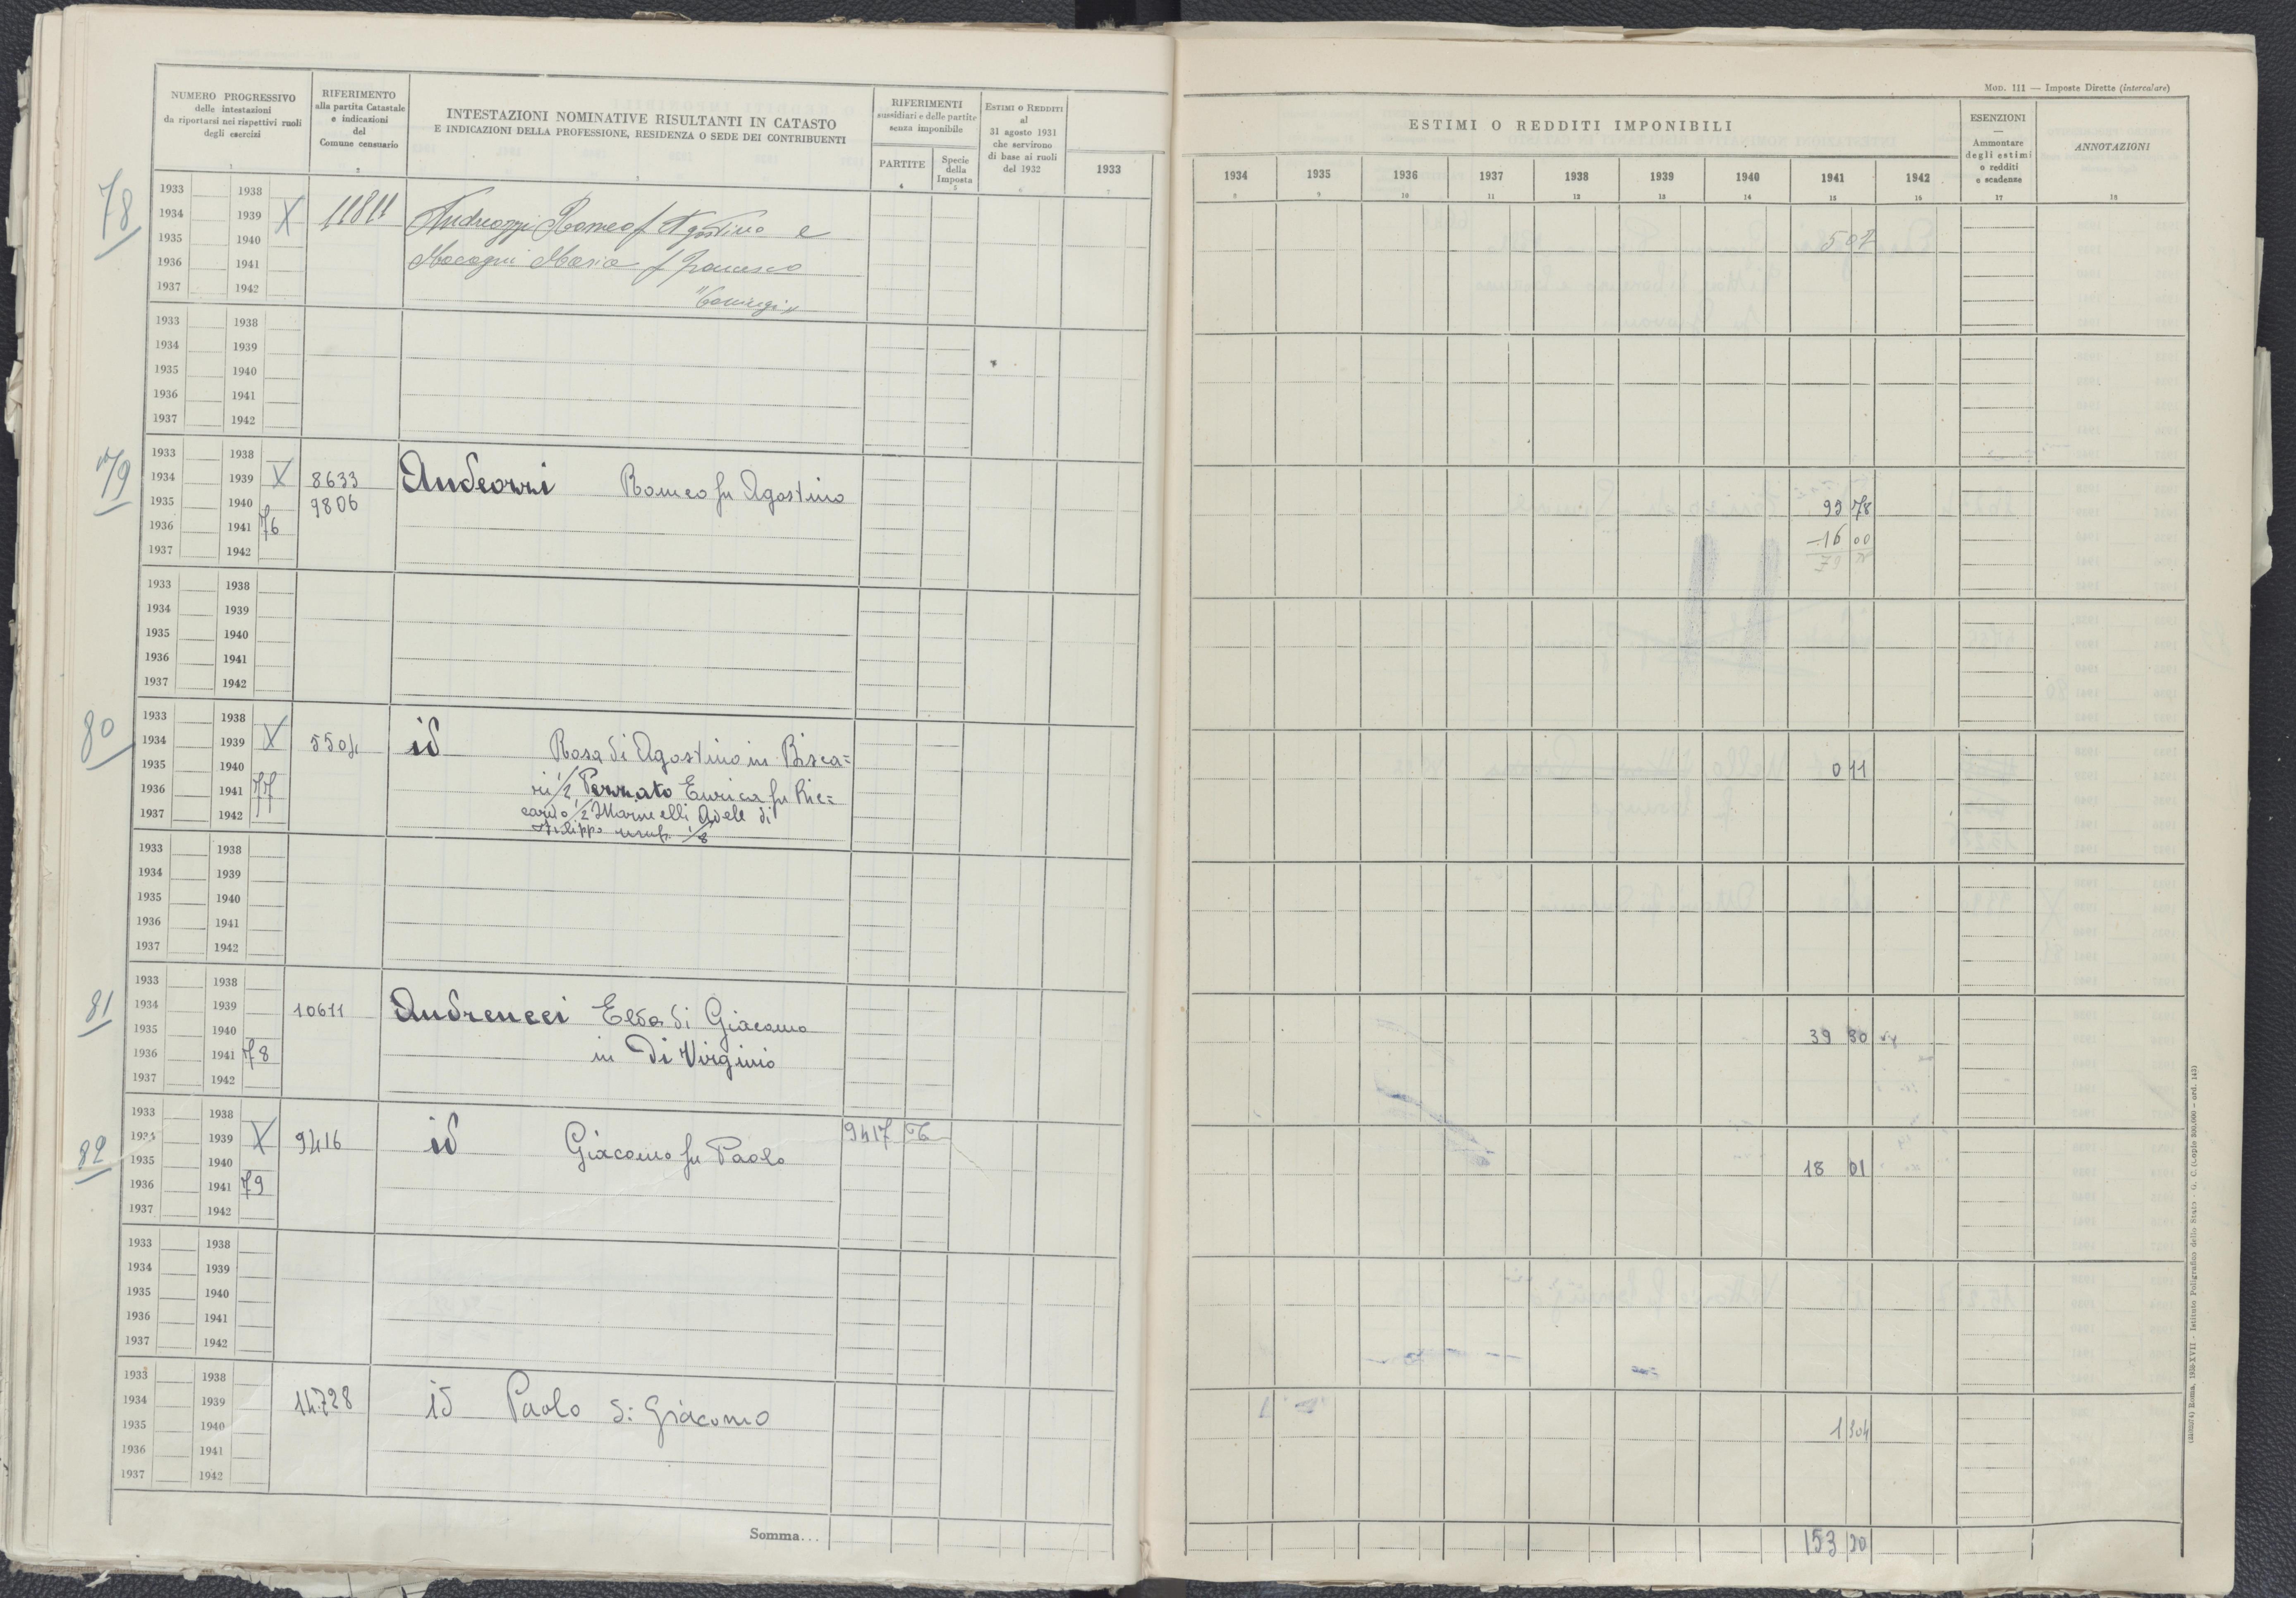 NUMERO PROGRESSIVO
delle intestazioni
da riportarsi nei rispettivi ruoli
degli esercizi
1
RIFERIMENTO
alla partita Catastale
e indicazioni
del
Comune censuario
2
INTESTAZIONI NOMINATIVE RISULTANTI IN CATASTO
E INDICAZIONI DELLA PROFESSIONE, RESIDENZA O SEDE DEI CONTRIBUENTI
3
RIFERIMENTI
sussidiari e delle partite
senza imponibile
PARTITE
4
Specie
della
Imposta
5
ESTIMI O REDDITI
al
31 agosto 1931
che servirono
di base ai ruoli
del 1932
6
1933
7
78
1933 1938
1934 1939 X 11811
1935 1940
1936 1941
1937 1942
Andreozzi Romeo f Agostino e
Maria f Francesco
"Coniugi"
1933 1938
1934 1939
1935 1940
1936 1941
1937 1942
79
1933 1938
1934 1939 X 8633 Andeozzi Romeo fu Agostino
1935 1940 9806
1936 1941 76
1937 1942
1933 1938
1934 1939
1935 1940
1936 1941
1937 1942
80
1933 1938
1934 1939 X 5504 id Rosa di Agostino in Bisca=
1935 1940
ri 1/2 Perrato Enrica fu Ric=
1936 1941 77
cardo 1/2 Marinelli Adele di
1937 1942
Filippo usuf. 1/8
1933 1938
1934 1939
1935 1940
1936 1941
1937 1942
81
1933 1938
1934 1939 10611 Andreucci Elsa di Giacomo
1935 1940
in Di Virginio
1936 1941 78
1937 1942
82
1933 1938
1934 1939 X 9416 id Giacomo fu Paolo 9417 T
1935 1940
1936 1941 79
1937 1942
1933 1938
1934 1939
1935 1940
1936 1941
1937 1942
1933 1938
1934 1939 14728 id Paolo di Giacomo
1935 1940
1936 1941
1937 1942
Somma...
MOD. 111 — Imposte Dirette (intercalare)
ESTIMI O REDDITI IMPONIBILI
1934 1935 1936 1937 1938 1939 1940 1941 1942
8 9 10 11 12 13 14 15 16
ESENZIONI
—
Ammontare
degli estimi
o redditi
e scadenze
17
ANNOTAZIONI
18
93 78
-16 00
0 11
39 30
18 01
1 304
153 20
Roma, 1938-XVI - Istituto Poligrafico dello Stato - G. C. (Copie 300,000 - ord. 143)